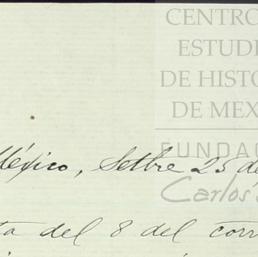 CENTRO
ESTUDI
DE HISTO
DE MEX
FUNDA
Carlos
México, Setbre 25 de
ta del 8 del corr